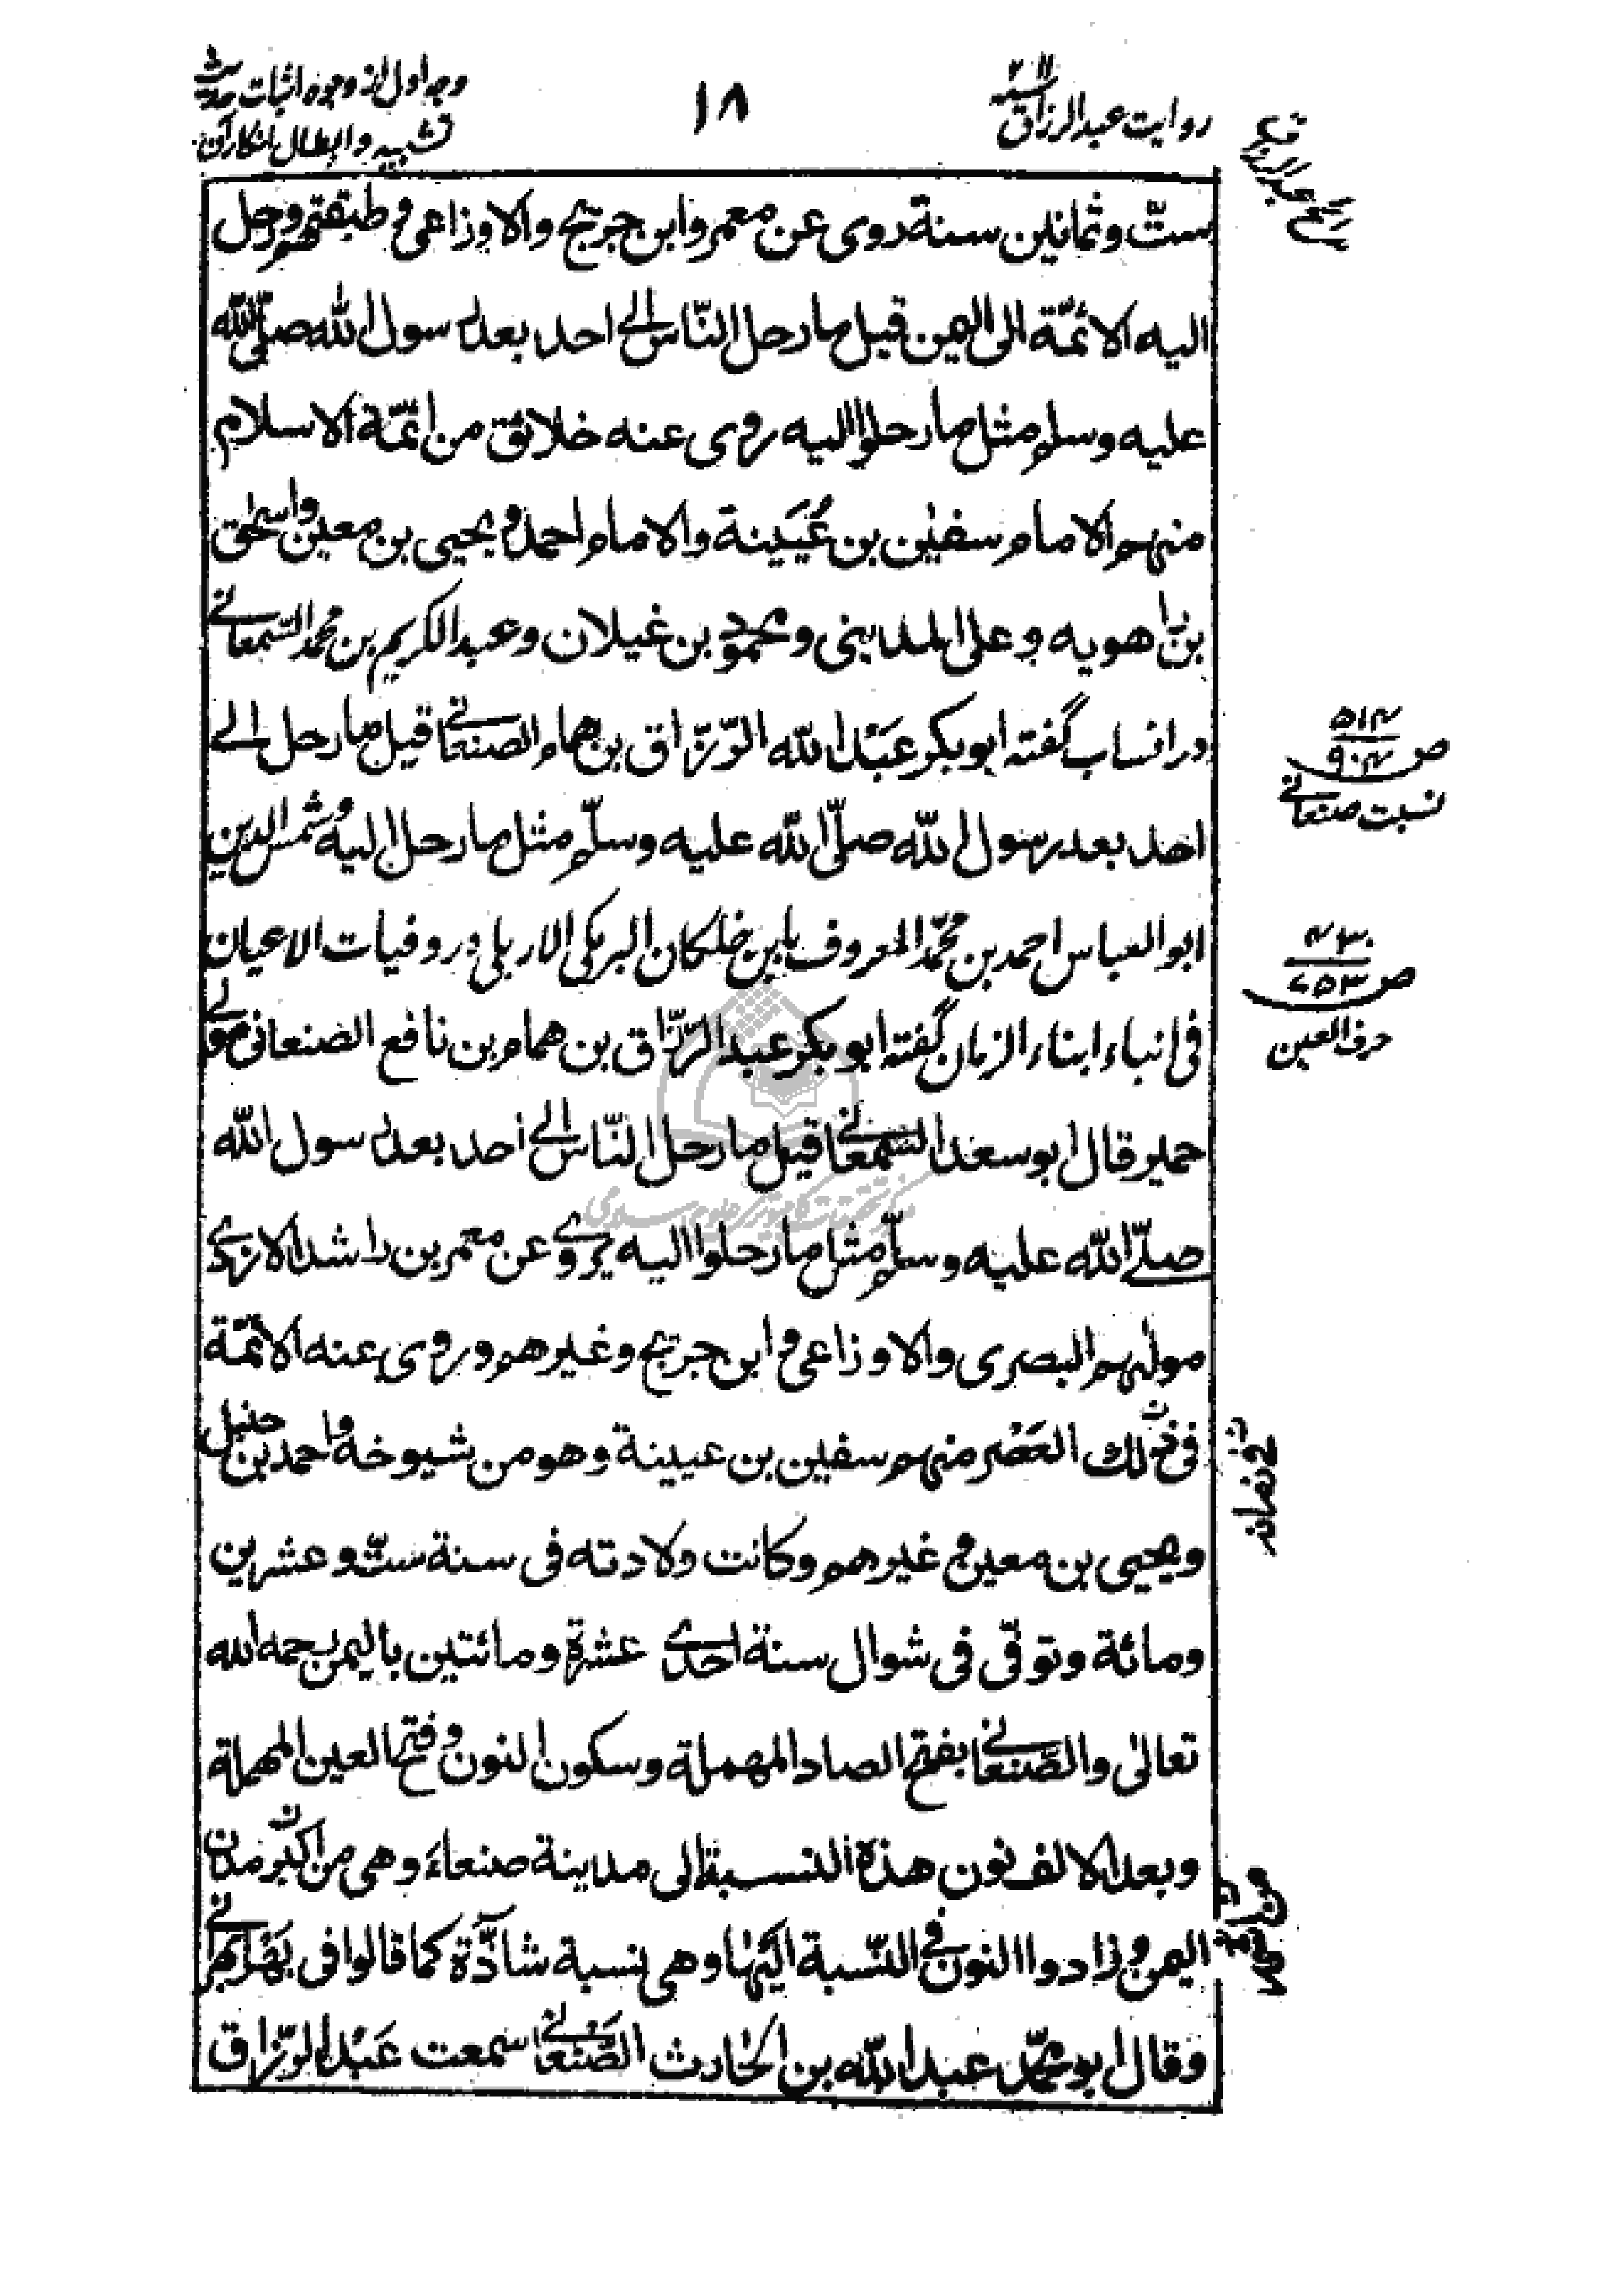 روایت عبدالرزاق سنه ۲۱۱
۱۸
وجه اول از وجوه اثبات حدیث
تشبیه و ابطال انکار آن
ستّ وثمانین سنة روی عن معمر وابن جریج والاوزاعی و طبقتهم ورحل
الیه الائمّة الی الیمن قیل ما رحل النّاس الی احد بعد رسول الله صلّی الله
علیه وسلم مثل ما رحلوا الیه روی عنه خلائق من ائمّة الاسلام
منهم الامام سفین بن عُیَینة والامام احمد و یحیی بن معین واسحٰق
بن راهویه و علی المدینی و محمود بن غیلان و عبد الکریم بن محمد السّمعانی
در انساب گفته ابو بکر عبد الله الرّزّاق بن همام الصنعانی قیل ما رحل الی
احد بعد رسول الله صلّی الله علیه وسلّم مثل ما رحل الیه و شمس الدین
ابو العباس احمد بن محمّد المعروف بابن خلکان البرمکی الاربلی در وفیات الاعیان
فی انباء ابناء الزمان گفته ابو بکر عبد الرّزّاق بن همام بن نافع الصنعانی مولی
حمیر قال ابو سعد السّمعانی قیل ما رحل النّاس الی احد بعد رسول الله
صلّی الله علیه وسلّم مثل ما رحلوا الیه یروی عن معمر بن راشد الازدی
مولٰهم البصری والاوزاعی و ابن جریج وغیرهم وروی عنه الائمّة
فی ذلک العَصْر منهم سفین بن عیینة وهو من شیوخه واحمد بن حنبل
ویحیی بن معین و غیرهم وکانت ولادته فی سنة ستّ وعشرین
ومائة وتوفّی فی شوال سنة احدی عشرة ومائتین بالیمن رحمه الله
تعالٰی والصَّنعانی بفتح الصاد المهملة وسکون النون و فتح العین المهملة
وبعد الالف نون هذه النسبة الی مدینة صنعاءَ وهی من اکبر مدن
الیمن وزادوا النون فی النّسبة الَیْهَا وهی نسبة شاذّة کما قالوا فی بَهْراء بهرانی
وقال ابو محمّد عبد الله بن الحارث الصَّنْعانی سمعت عَبْد الرّزاق
ص ۵۱۴
۹۰۴
نسبت صنعانی
ص ۴۳۰
۶۵۳
حرف العین